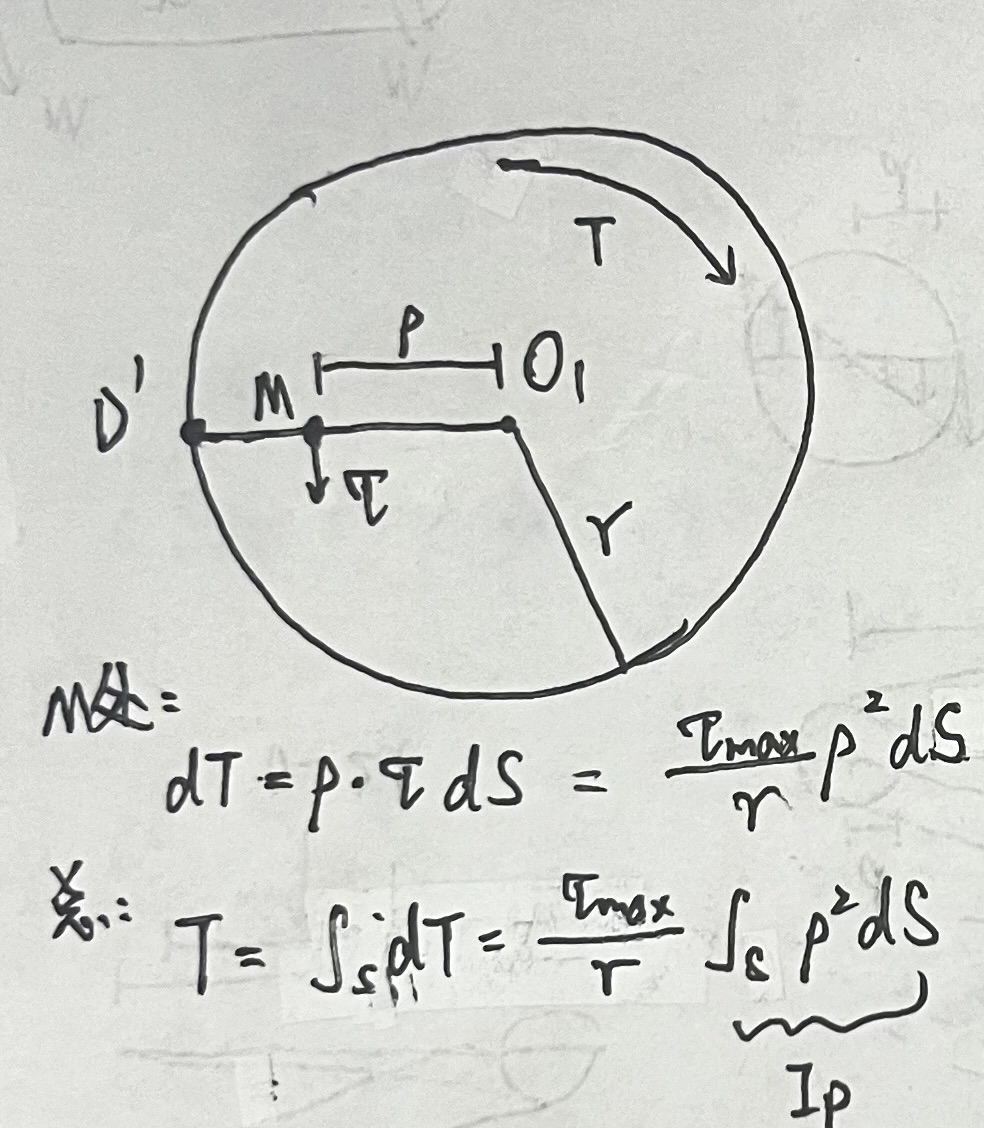 T
ρ
O₁
D'
M
τ
r
M处:
dT = ρ·τ dS = τmax/r ρ² dS
总: T = ∫s dT = τmax/r ∫s ρ² dS
Iρ